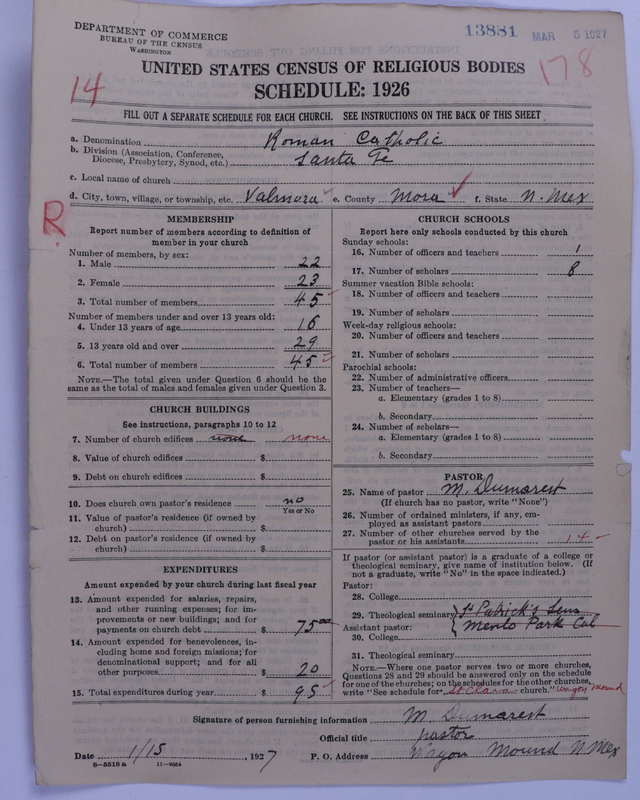 DEPARTMENT OF COMMERCE
BUREAU OF THE CENSUS
WASHINGTON
13881 MAR 5 1927
178
14
UNITED STATES CENSUS OF RELIGIOUS BODIES
SCHEDULE: 1926
FILL OUT A SEPARATE SCHEDULE FOR EACH CHURCH. SEE INSTRUCTIONS ON THE BACK OF THIS SHEET
a. Denomination Roman Catholic
b. Division (Association, Conference,
Diocese, Presbytery, Synod, etc.) Santa Fe
c. Local name of church
d. City, town, village, or township, etc. Valmora e. County Mora f. State N. Mex
R.
MEMBERSHIP
Report number of members according to definition of
member in your church
Number of members, by sex:
1. Male 22
2. Female 23
3. Total number of members 45
Number of members under and over 13 years old:
4. Under 13 years of age 16
5. 13 years old and over 29
6. Total number of members 45
NOTE.—The total given under Question 6 should be the
same as the total of males and females given under Question 3.
CHURCH BUILDINGS
See instructions, paragraphs 10 to 12
7. Number of church edifices none none
8. Value of church edifices $
9. Debt on church edifices $
10. Does church own pastor's residence no
Yes or No
11. Value of pastor's residence (if owned by
church) $
12. Debt on pastor's residence (if owned by
church) $
EXPENDITURES
Amount expended by your church during last fiscal year
13. Amount expended for salaries, repairs,
and other running expenses; for im-
provements or new buildings; and for
payments on church debt $ 75.00
14. Amount expended for benevolences, in-
cluding home and foreign missions; for
denominational support; and for all
other purposes $ 20
15. Total expenditures during year $ 95
CHURCH SCHOOLS
Report here only schools conducted by this church
Sunday schools:
16. Number of officers and teachers 1
17. Number of scholars 8
Summer vacation Bible schools:
18. Number of officers and teachers
19. Number of scholars
Week-day religious schools:
20. Number of officers and teachers
21. Number of scholars
Parochial schools:
22. Number of administrative officers
23. Number of teachers—
a. Elementary (grades 1 to 8)
b. Secondary
24. Number of scholars—
a. Elementary (grades 1 to 8)
b. Secondary
PASTOR
25. Name of pastor M. Dumarest
(If church has no pastor, write "None")
26. Number of ordained ministers, if any, em-
ployed as assistant pastors
27. Number of other churches served by the
pastor or his assistants 14
If pastor (or assistant pastor) is a graduate of a college or
theological seminary, give name of institution below. (If
not a graduate, write "No" in the space indicated.)
Pastor:
28. College
29. Theological seminary St Patrick's Sem
Assistant pastor: Menlo Park Cal
30. College
31. Theological seminary
NOTE.—Where one pastor serves two or more churches,
Questions 28 and 29 should be answered only on the schedule
for one of the churches; on the schedules for the other churches,
write "See schedule for St Clara church." Wagon Mound
Signature of person furnishing information M. Dumarest
Official title pastor
Date 1/15, 1927 P. O. Address Wagon Mound N Mex
8-5518 a 11-9094